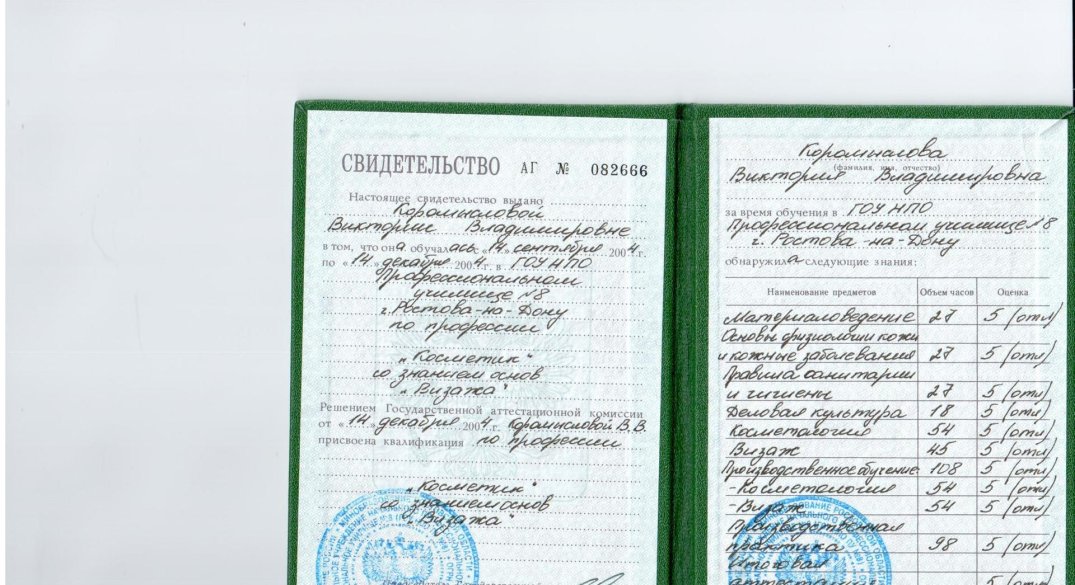 СВИДЕТЕЛЬСТВО АГ № 082666
Настоящее свидетельство выдано
Коромысловой
Виктории Владимировне
в том, что она обучалась с «14» сентября 2004 г.
по «14» декабря 2004 г. в ГОУ НПО
Профессиональном
училище №8
г. Ростова-на-Дону
по профессии
„Косметик"
со знанием основ
„Визажа"
Решением Государственной аттестационной комиссии
от «14» декабря 2004 г. Коромысловой В.В.
присвоена квалификация по профессии
„Косметик"
со знанием основ
„Визажа"
Коромыслова
(фамилия, имя, отчество)
Виктория Владимировна
за время обучения в ГОУ НПО
Профессиональном училище №8
г. Ростова-на-Дону
обнаружила следующие знания:
Наименование предметов Объем часов Оценка
Материаловедение 27 5 (отл)
Основы физиологии кожи
и кожные заболевания 27 5 (отл)
Правила санитарии
и гигиены 27 5 (отл)
Деловая культура 18 5 (отл)
Косметология 54 5 (отл)
Визаж 45 5 (отл)
Производственное обучение: 108 5 (отл)
- Косметология 54 5 (отл)
- Визаж 54 5 (отл)
Производственная
практика 98 5 (отл)
Итоговая
аттестация 5 (отл)